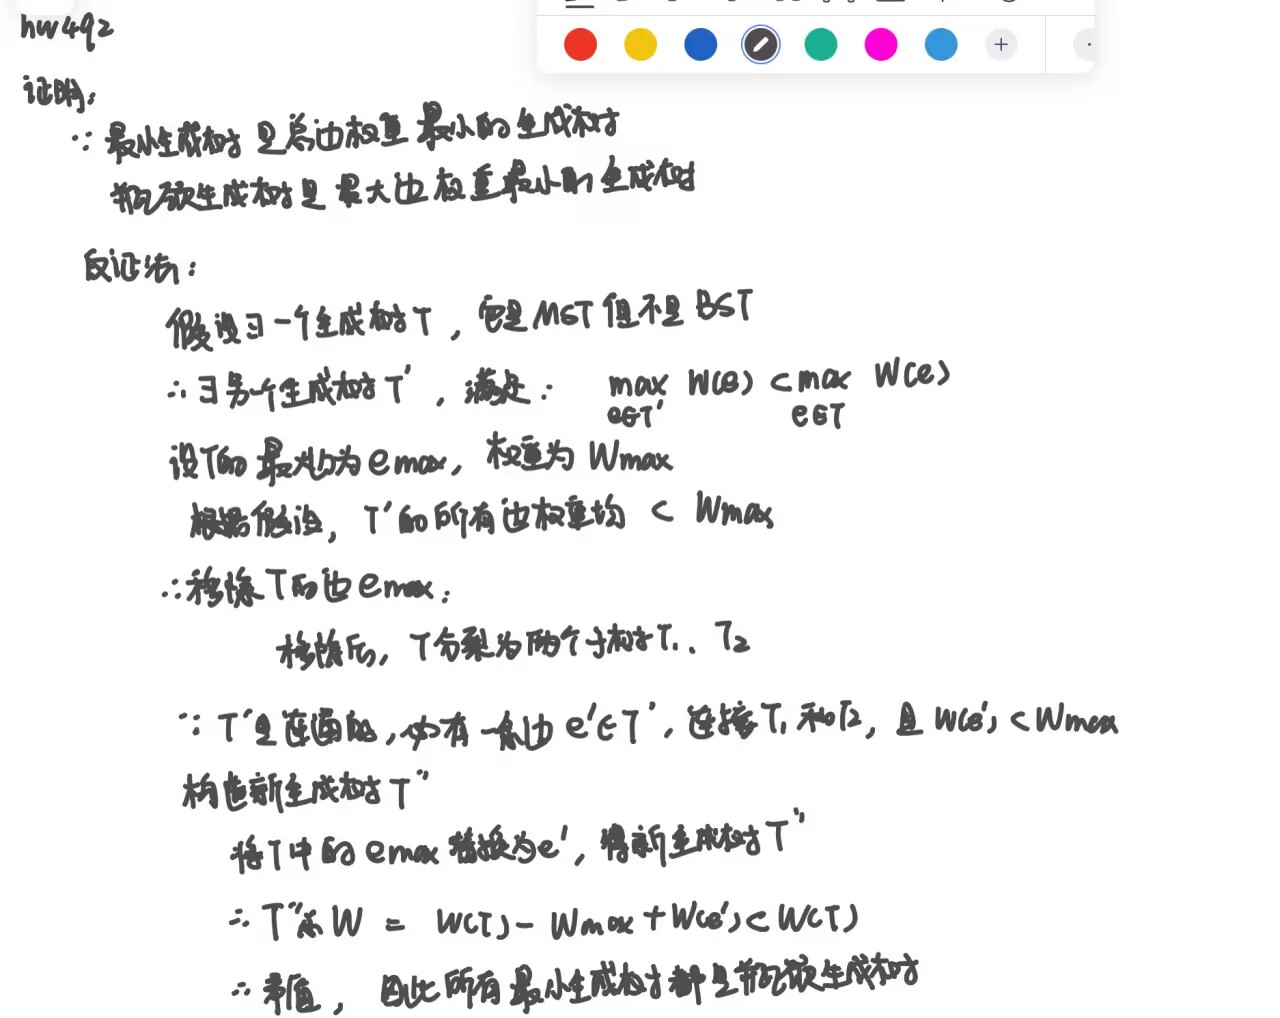 hw4q2
证明：
∵ 最小生成树是总边权重最小的生成树
瓶颈生成树是最大边权重最小的生成树
反证法：
假设∃一个生成树T，它是MST但不是BST
∴∃另一个生成树T'，满足： max W(e) < max W(e)
e∈T' e∈T
设T的最大边为emax，权重为Wmax
根据假设，T'的所有边权重均 < Wmax
∴移除T的边emax：
移除后，T分裂为两个子树T₁、T₂
∵ T'是连通的，必有一条边e'∈T'，连接T₁和T₂，且W(e')<Wmax
构造新生成树T"
将T中的emax替换为e'，得新生成树T"
∴ T"总W = W(T)-Wmax+W(e')<W(T)
∴矛盾，因此所有最小生成树都是瓶颈生成树